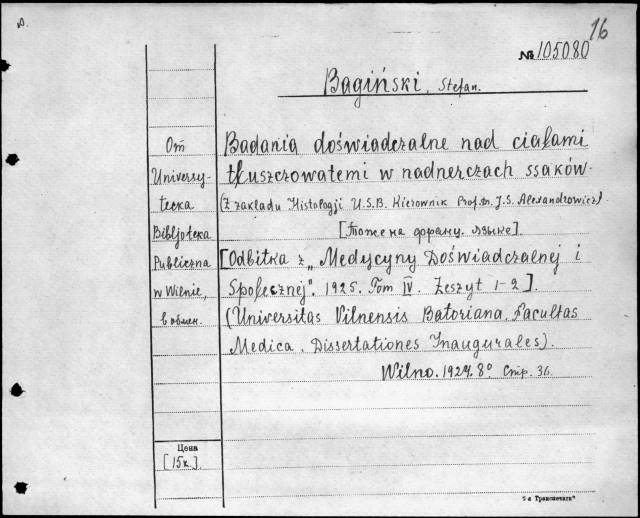 16
№ 105080
Bagiński, Stefan.
Badania doświadczalne nad ciałami
tłuszczowatemi w nadnerczach ssaków.
(Z zakładu Histologji U.S.B. Kierownik Prof. Dr. J.S. Alexandrowicz)
[Тоже на франц. языке].
[Odbitka z „Medycyny Doświadczalnej i
Społecznej". 1925. Tom IV. Zeszyt 1-2].
(Universitas Vilnensis Batoriana. Facultas
Medica. Dissertationes Inaugurales).
Wilno. 1924. 8° Стр. 36.
От
Universy-
tecka
Bibljoteka
Publiczna
w Wilnie,
в обмен.
Цена
[15к.]
"Транспечать"